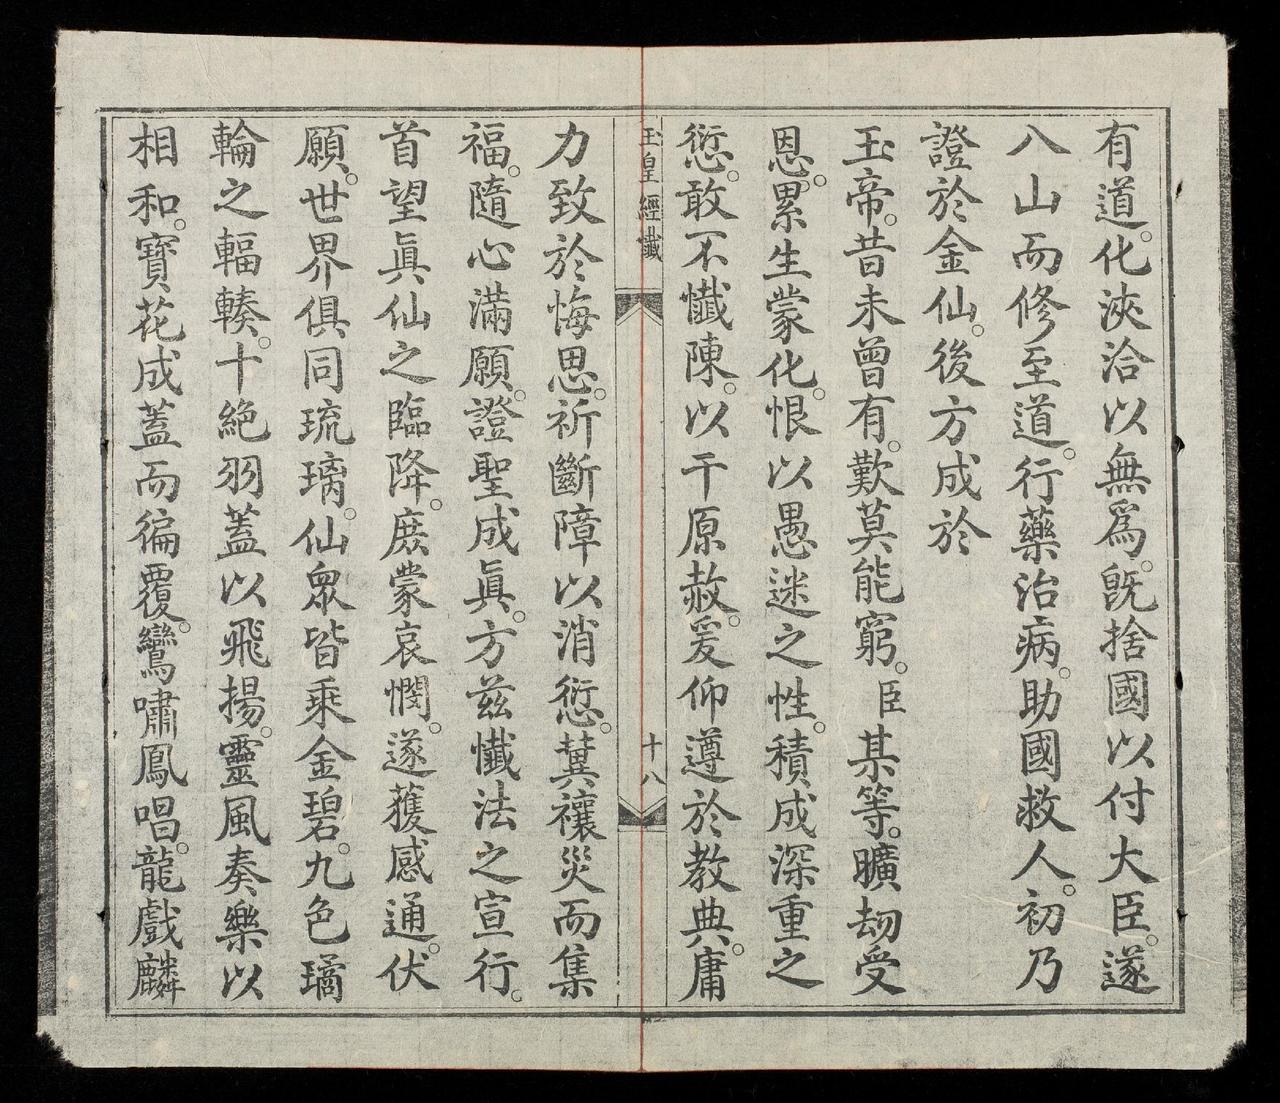 有道。化浹洽以無爲。旣捨國以付大臣。遂
八山而修至道。行藥治病。助國救人。初乃
證於金仙。後方成於
玉帝。昔未曾有。歎莫能窮。臣某等。曠劫受
恩。累生蒙化。恨以愚迷之性。積成深重之
愆。敢不懺陳。以干原赦。爰仰遵於教典。庸
玉皇經懺 十八
力致於悔思。祈斷障以消愆。冀禳災而集
福。隨心滿願。證聖成眞。方茲懺法之宣行。
首望眞仙之臨降。庶蒙哀憫。遂獲感通。伏
願。世界俱同琉璃。仙眾皆乘金碧。九色璚
輪之輻輳。十絕羽蓋以飛揚。靈風奏樂以
相和。寶花成蓋而徧覆。鸞嘯鳳唱。龍戲麟